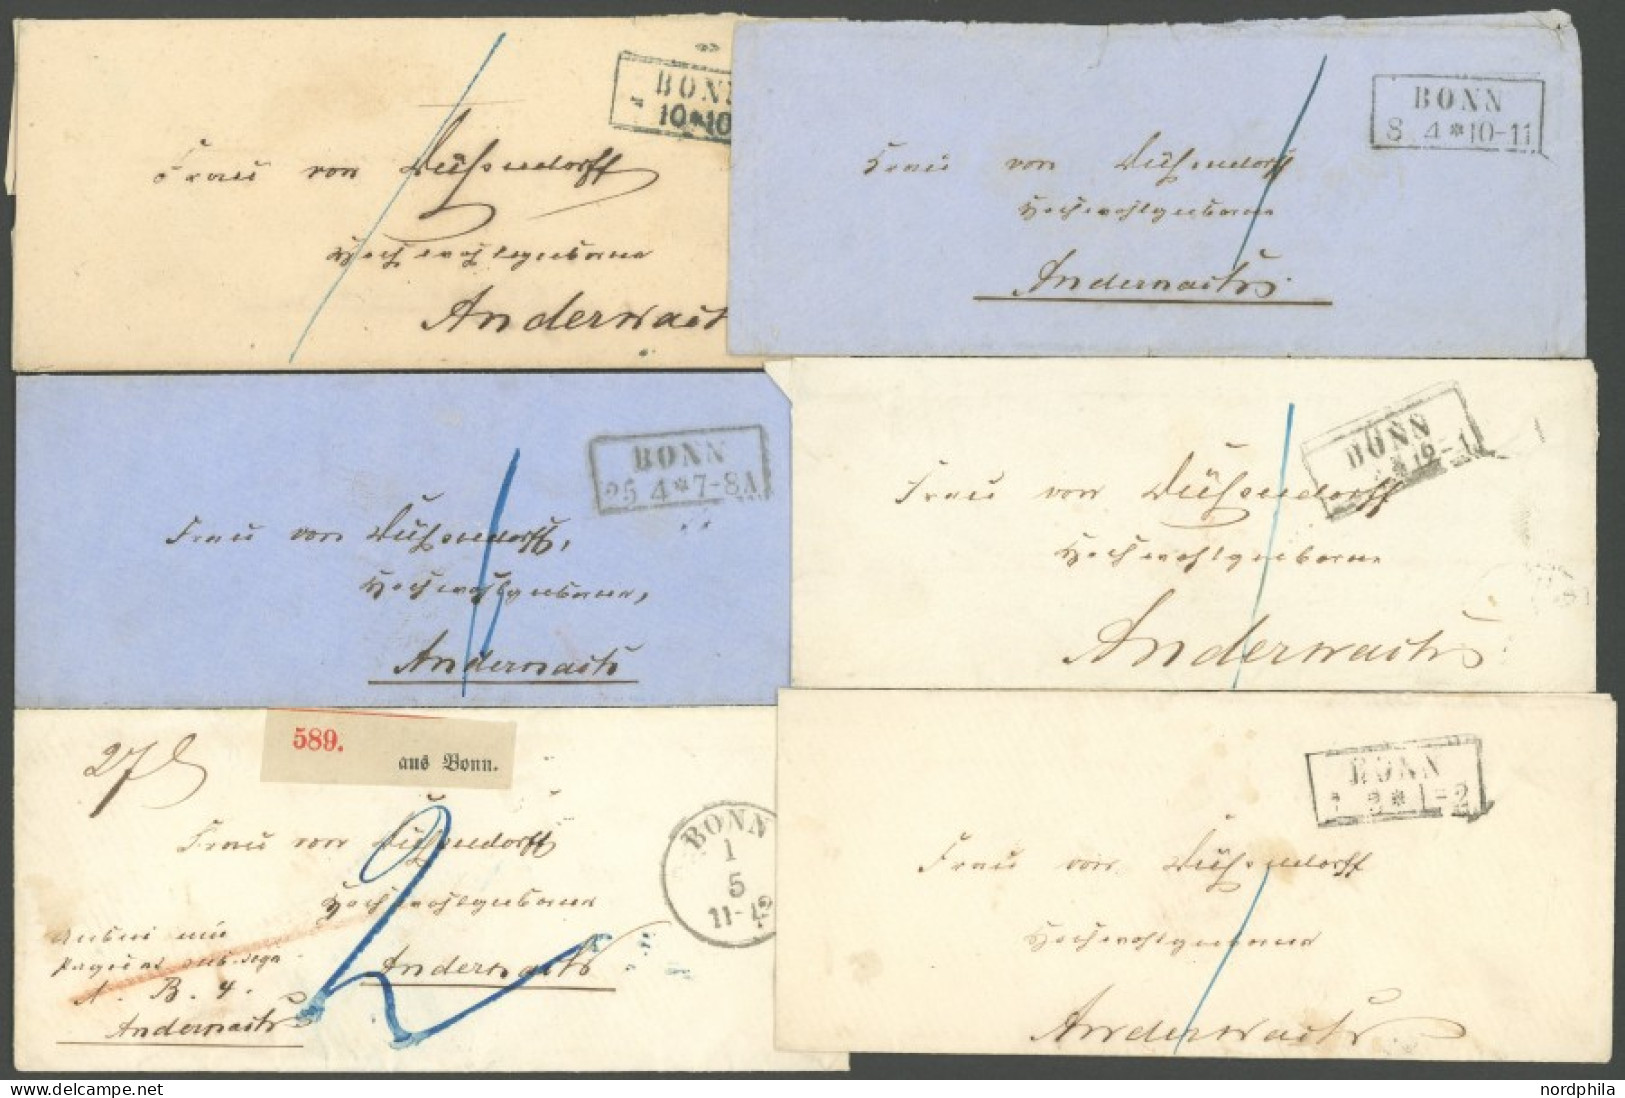 BONN
10*10
Frau von Düssendorff
Hochwohlgeboren
Andernach
BONN
8 4*10-11
Frau von Düssendorff
Hochwohlgeboren
Andernach
BONN
25 4*7-8
Frau von Düssendorff,
Hochwohlgeboren,
Andernach
BONN
*12-1
Frau von Düssendorff
Hochwohlgeboren
Andernach
589.
aus Bonn.
BONN
1
5
11-12
Frau von Düssendorff
Hochwohlgeboren
Andernach
2
A. B. 4.
Andernach
BONN
*1-2
Frau von Düssendorff
Hochwohlgeboren
Andernach
nordphila.com